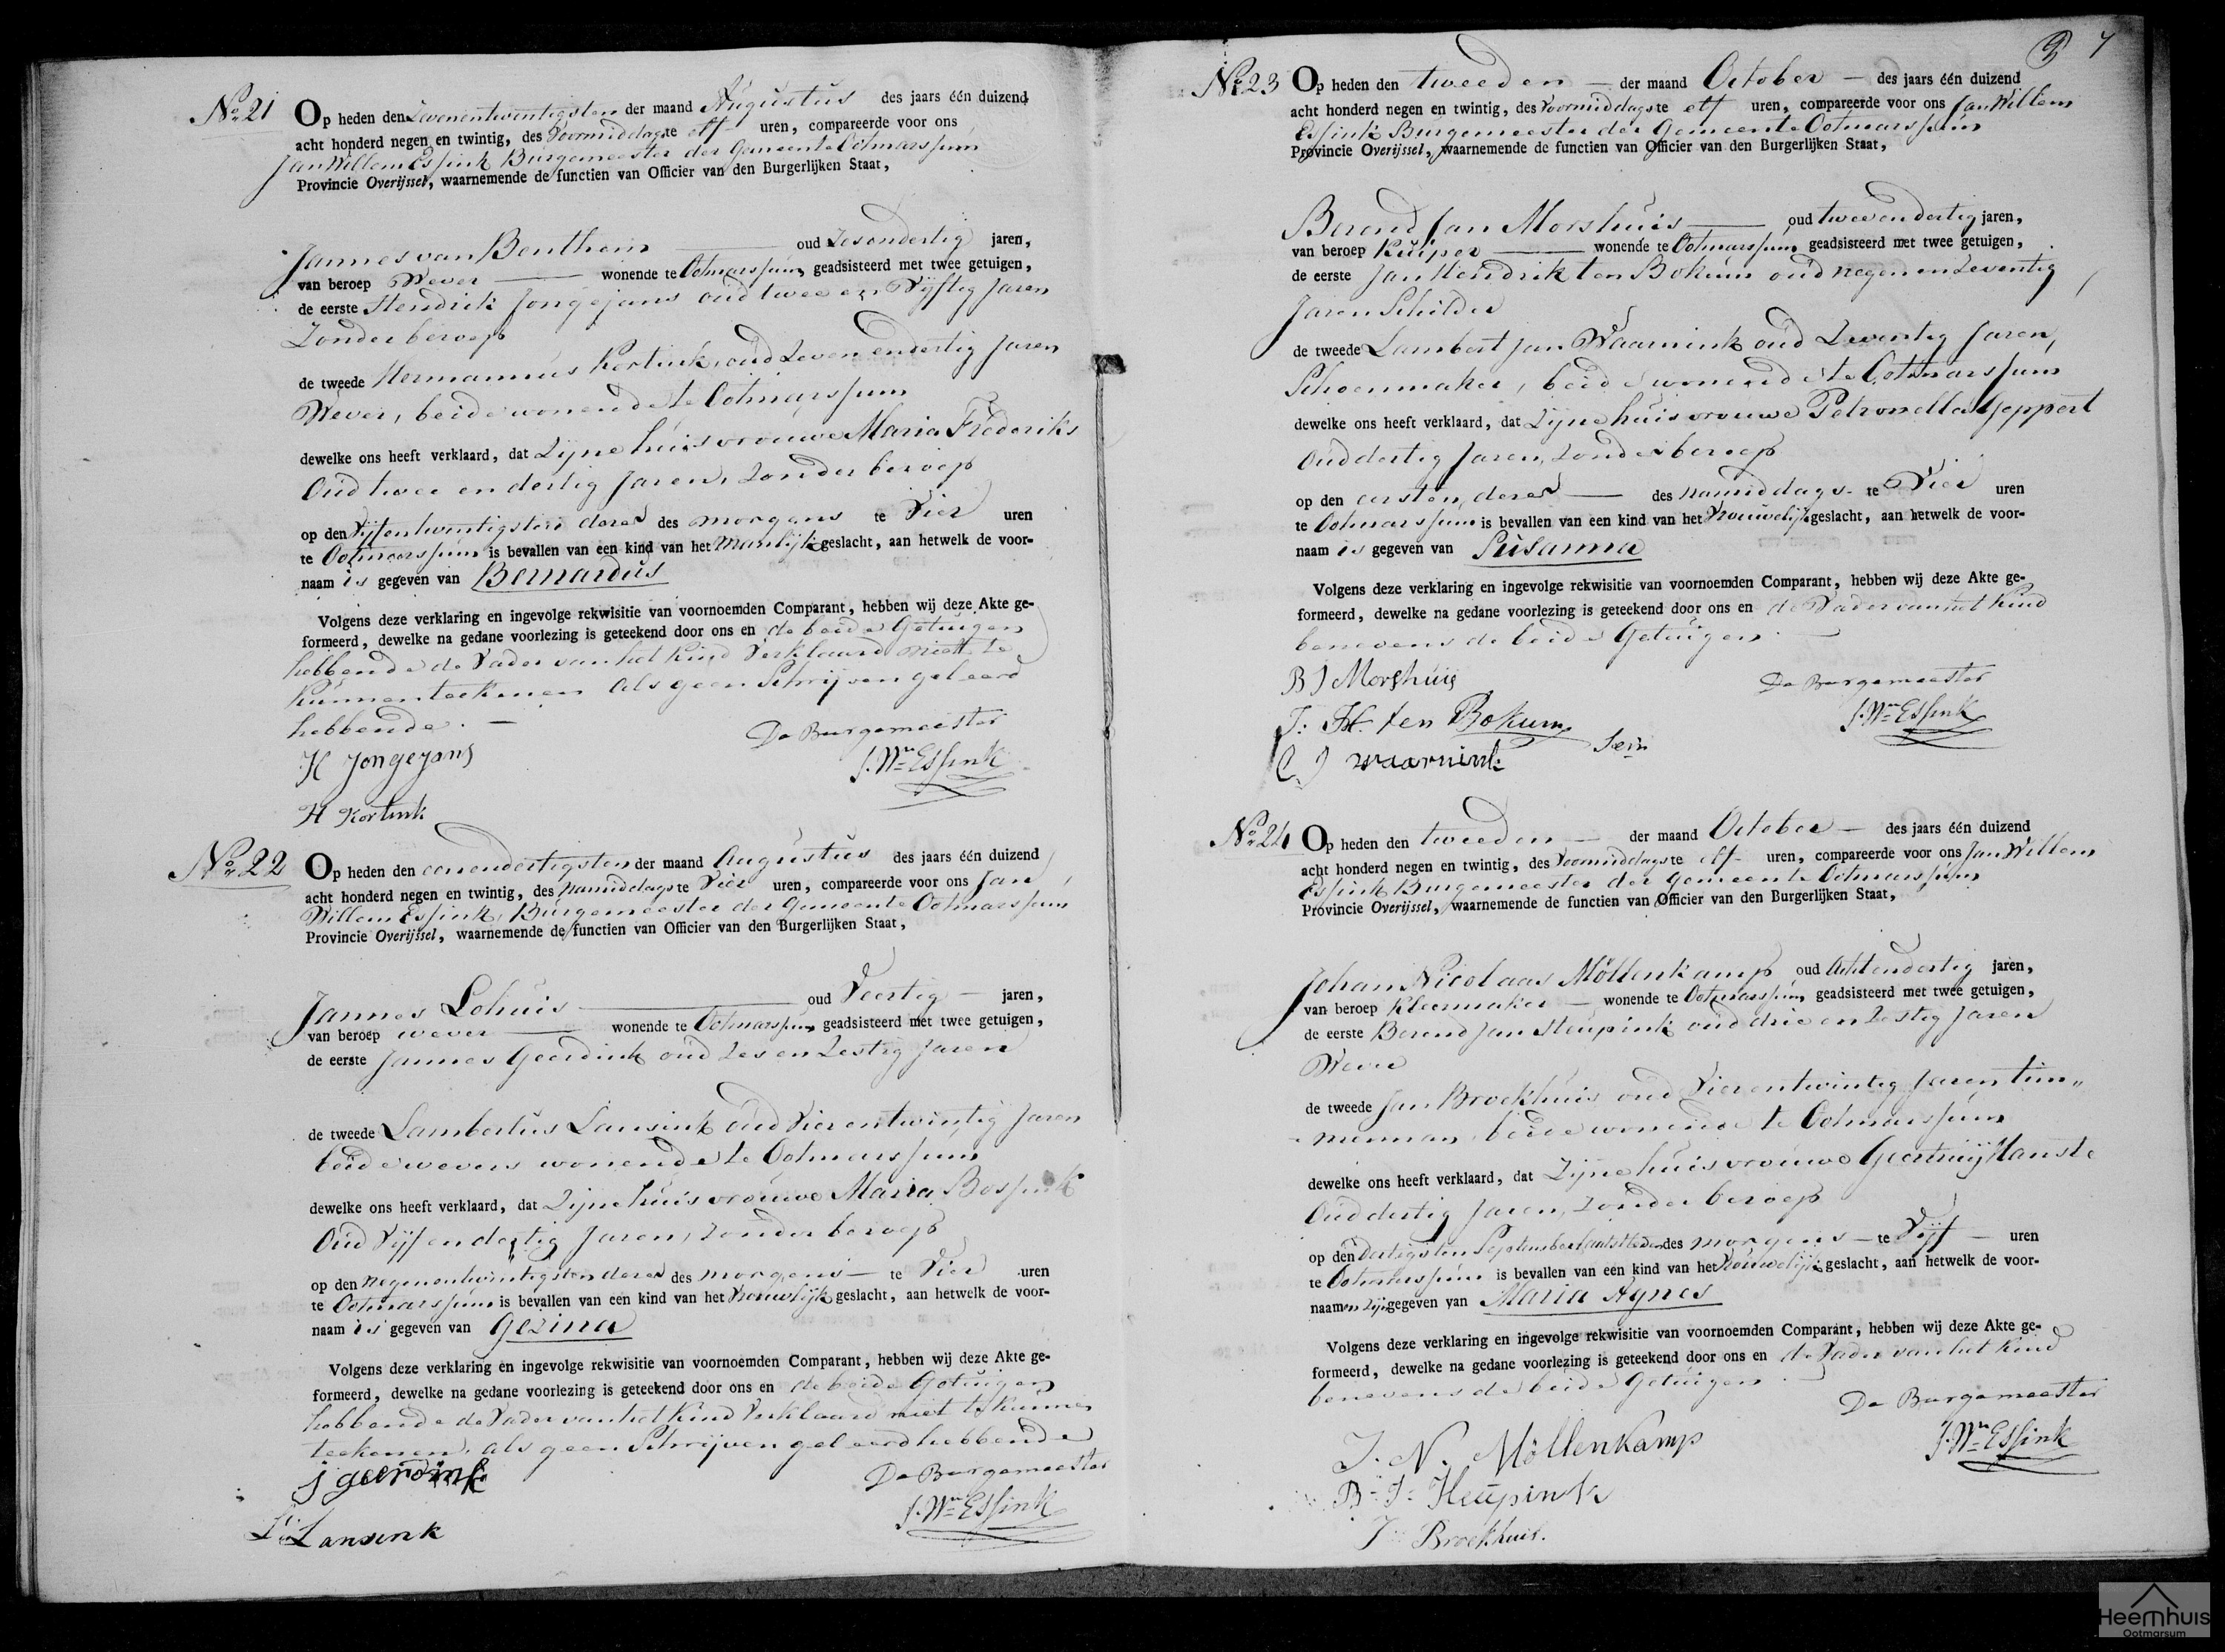 No 21 Op heden den Zevenentwintigsten der maand Augustus des jaars één duizend
acht honderd negen en twintig, des Voormiddags te elf uren, compareerde voor ons
Jan Willem Essink Burgemeester der Gemeente Ootmarssum
Provincie Overijssel, waarnemende de functien van Officier van den Burgerlijken Staat,
Jannes van Benthem oud Zesendertig jaren,
van beroep Wever wonende te Ootmarssum, geadsisteerd met twee getuigen,
de eerste Hendrik Jongejans oud twee en Vijftig Jaren
Zonder beroep
de tweede Hermannus Kortink, oud Zeven endertig Jaren
Wever, beide wonende te Ootmarssum
dewelke ons heeft verklaard, dat Zijne huisvrouwe Maria Frederiks
Oud twee en dertig Jaren, Zonder beroep
op den Vijfentwintigsten dezer des morgens te Vier uren
te Ootmarssum is bevallen van een kind van het Manlijk geslacht, aan hetwelk de voor-
naam is gegeven van Bernardus
Volgens deze verklaring en ingevolge rekwisitie van voornoemden Comparant, hebben wij deze Akte ge-
formeerd, dewelke na gedane voorlezing is geteekend door ons en de beide Getuigen
hebbende de Vader van het Kind Verklaard niet te
Kunnen teekenen als geen Schrijven geleerd
hebbende. —
De Burgemeester
H Jongejans
J. Wm Essink
H Kortink
No 22 Op heden den eenendertigsten der maand Augustus des jaars één duizend
acht honderd negen en twintig, des Namiddags te Vier uren, compareerde voor ons Jan
Willem Essink, Burgemeester der Gemeente Ootmarssum
Provincie Overijssel, waarnemende de functien van Officier van den Burgerlijken Staat,
Jannes Lohuis oud Veertig jaren,
van beroep wever wonende te Ootmarssum, geadsisteerd met twee getuigen,
de eerste Jannes Geerdink oud Zes en Zestig Jaren
de tweede Lambertus Lansink oud Vierentwintig Jaren
beide wevers wonende te Ootmarssum
dewelke ons heeft verklaard, dat Zijne huisvrouwe Maria Bossink
Oud Vijf en dertig Jaren, Zonder beroep
op den Negenentwintigsten dezer des morgens te Vier uren
te Ootmarssum is bevallen van een kind van het Vrouwlijk geslacht, aan hetwelk de voor-
naam is gegeven van Gezina
Volgens deze verklaring en ingevolge rekwisitie van voornoemden Comparant, hebben wij deze Akte ge-
formeerd, dewelke na gedane voorlezing is geteekend door ons en de beide Getuigen
hebbende de Vader van het Kind Verklaard niet te Kunnen
teekenen, als geen Schrijven geleerd hebbende
De Burgemeester
J geerdink
J. Wm Essink
L: Lansink
7
No 23 Op heden den tweeden — der maand October — des jaars één duizend
acht honderd negen en twintig, des Voormiddags te elf uren, compareerde voor ons Jan Willem
Essink Burgemeester der Gemeente Ootmarssum
Provincie Overijssel, waarnemende de functien van Officier van den Burgerlijken Staat,
Berend Jan Morshuis oud twee en dertig jaren,
van beroep Kuiper wonende te Ootmarssum, geadsisteerd met twee getuigen,
de eerste Jan Hendrik ten Bokum oud Negen en Zeventig
Jaren Schilder
de tweede Lambert Jan Waarnink oud Zeventig Jaren,
Schoenmaker, beide wonende te Ootmarssum
dewelke ons heeft verklaard, dat Zijne huisvrouwe Petronella Geppert
Oud dertig Jaren, Zonder beroep
op den eersten dezer des namiddags te Vier uren
te Ootmarssum is bevallen van een kind van het Vrouwelijk geslacht, aan hetwelk de voor-
naam is gegeven van Susanna
Volgens deze verklaring en ingevolge rekwisitie van voornoemden Comparant, hebben wij deze Akte ge-
formeerd, dewelke na gedane voorlezing is geteekend door ons en de Vader van het Kind
benevens de beide Getuigen. —
B J Morshuis
De Burgemeester
J: H: ten Bokum
J. Wm Essink
J waarnink
No 24 Op heden den tweeden — der maand October — des jaars één duizend
acht honderd negen en twintig, des Voormiddags te elf uren, compareerde voor ons Jan Willem
Essink Burgemeester der Gemeente Ootmarssum
Provincie Overijssel, waarnemende de functien van Officier van den Burgerlijken Staat,
Johan Nicolaas Möllenkamp oud Achtendertig jaren,
van beroep Kleermaker — wonende te Ootmarssum, geadsisteerd met twee getuigen,
de eerste Berend Jan Heupink oud drie en Zestig Jaren
Wever
de tweede Jan Broekhuis oud Vierentwintig Jaren, tim„
merman, beide wonende te Ootmarssum
dewelke ons heeft verklaard, dat Zijne huisvrouwe Geertruij Hanste
Oud dertig Jaren, Zonder beroep
op den dertigsten September laatstleden des morgens — te Vijf — uren
te Ootmarssum is bevallen van een kind van het Vrouwelijk geslacht, aan hetwelk de voor-
naamen zijn gegeven van Maria Agnes
Volgens deze verklaring en ingevolge rekwisitie van voornoemden Comparant, hebben wij deze Akte ge-
formeerd, dewelke na gedane voorlezing is geteekend door ons en de Vader van het Kind
benevens de beide Getuigen. —
De Burgemeester
J. N. Möllenkamp
J. Wm Essink
B: J: Heupink
J: Broekhuis.
Heemhuis
Ootmarsum